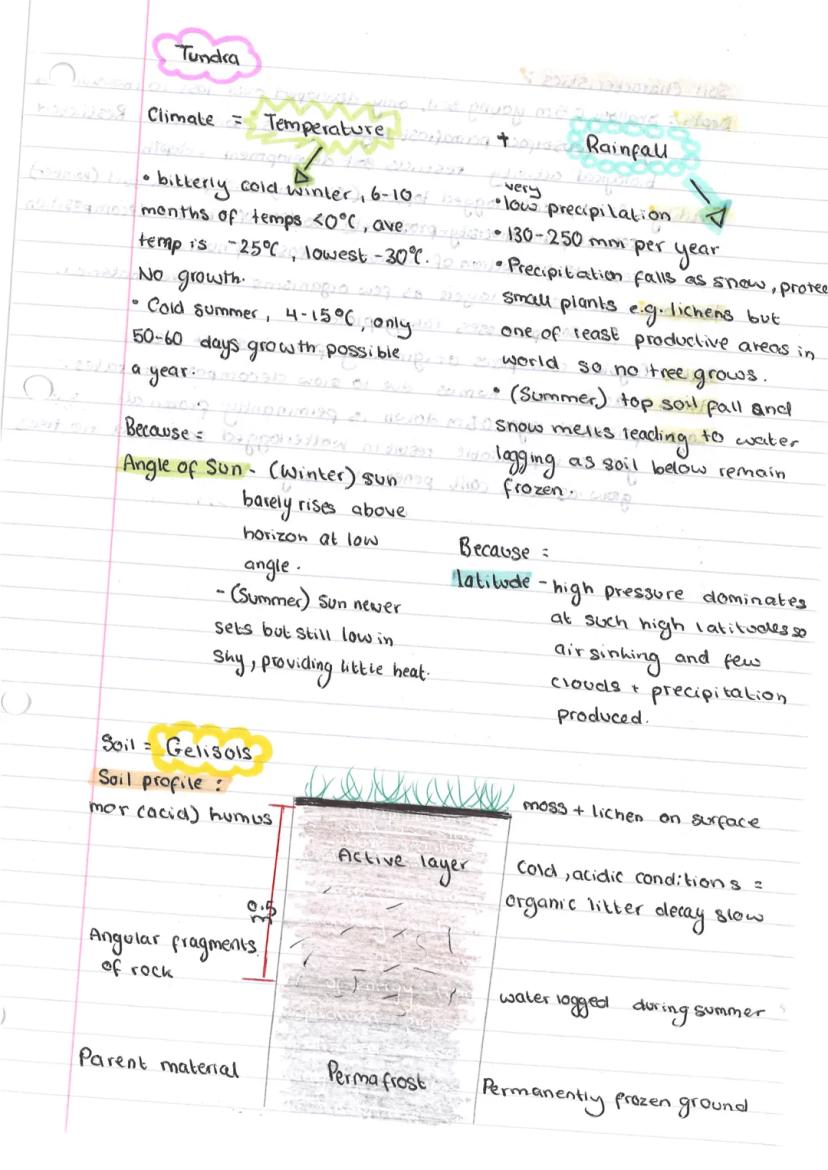 Tundra
Climate = Temperature + Rainfall
• bitterly cold winter, 6-10
months of temps <0°C, ave.
temp is -25°C, lowest -30°C.
No growth.
• Cold summer, 4-15°C, only
50-60 days growth possible
a year.
Because =
Angle of Sun - (Winter) sun
barely rises above
horizon at low
angle.
- (Summer) Sun never
sets but still low in
sky, providing little heat.
very
• low precipitation
• 130-250 mm per year
• Precipitation falls as snow, protec
small plants e.g. lichens but
one of least productive areas in
world so no tree grows.
• (Summer) top soil fall and
snow melts leading to water
logging as soil below remain
frozen.
Because =
latitude - high pressure dominates
at such high latitudes so
air sinking and few
clouds + precipitation
produced.
Soil = Gelisols
Soil profile :
mor (acid) humus
moss + lichen on surface
Active layer
Cold, acidic conditions =
organic litter decay slow
0.5
m
Angular fragments
of rock
water logged during summer
Parent material
Permafrost
Permanently frozen ground